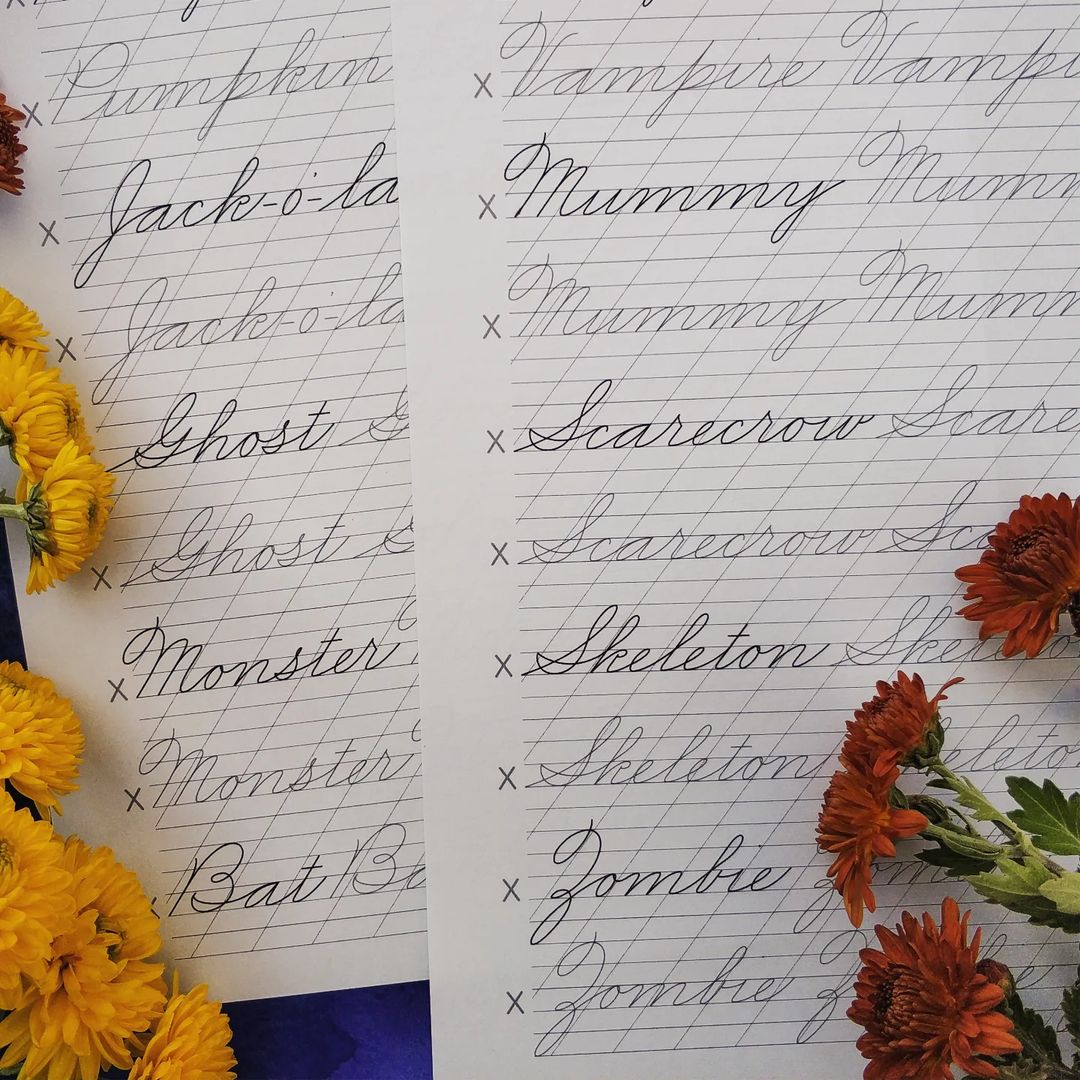 x Pumpkin
x Jack-o'-la
x Jack-o'-la
x Ghost G
x Ghost G
x Monster
x Monster
Bat Ba
x Vampire Vampi
x Mummy Mumm
x Mummy Mumm
x Scarecrow Scare
x Scarecrow Sc
x Skeleton Skel
x Skeleton eleto
x Zombie Zo
x Zombie Z